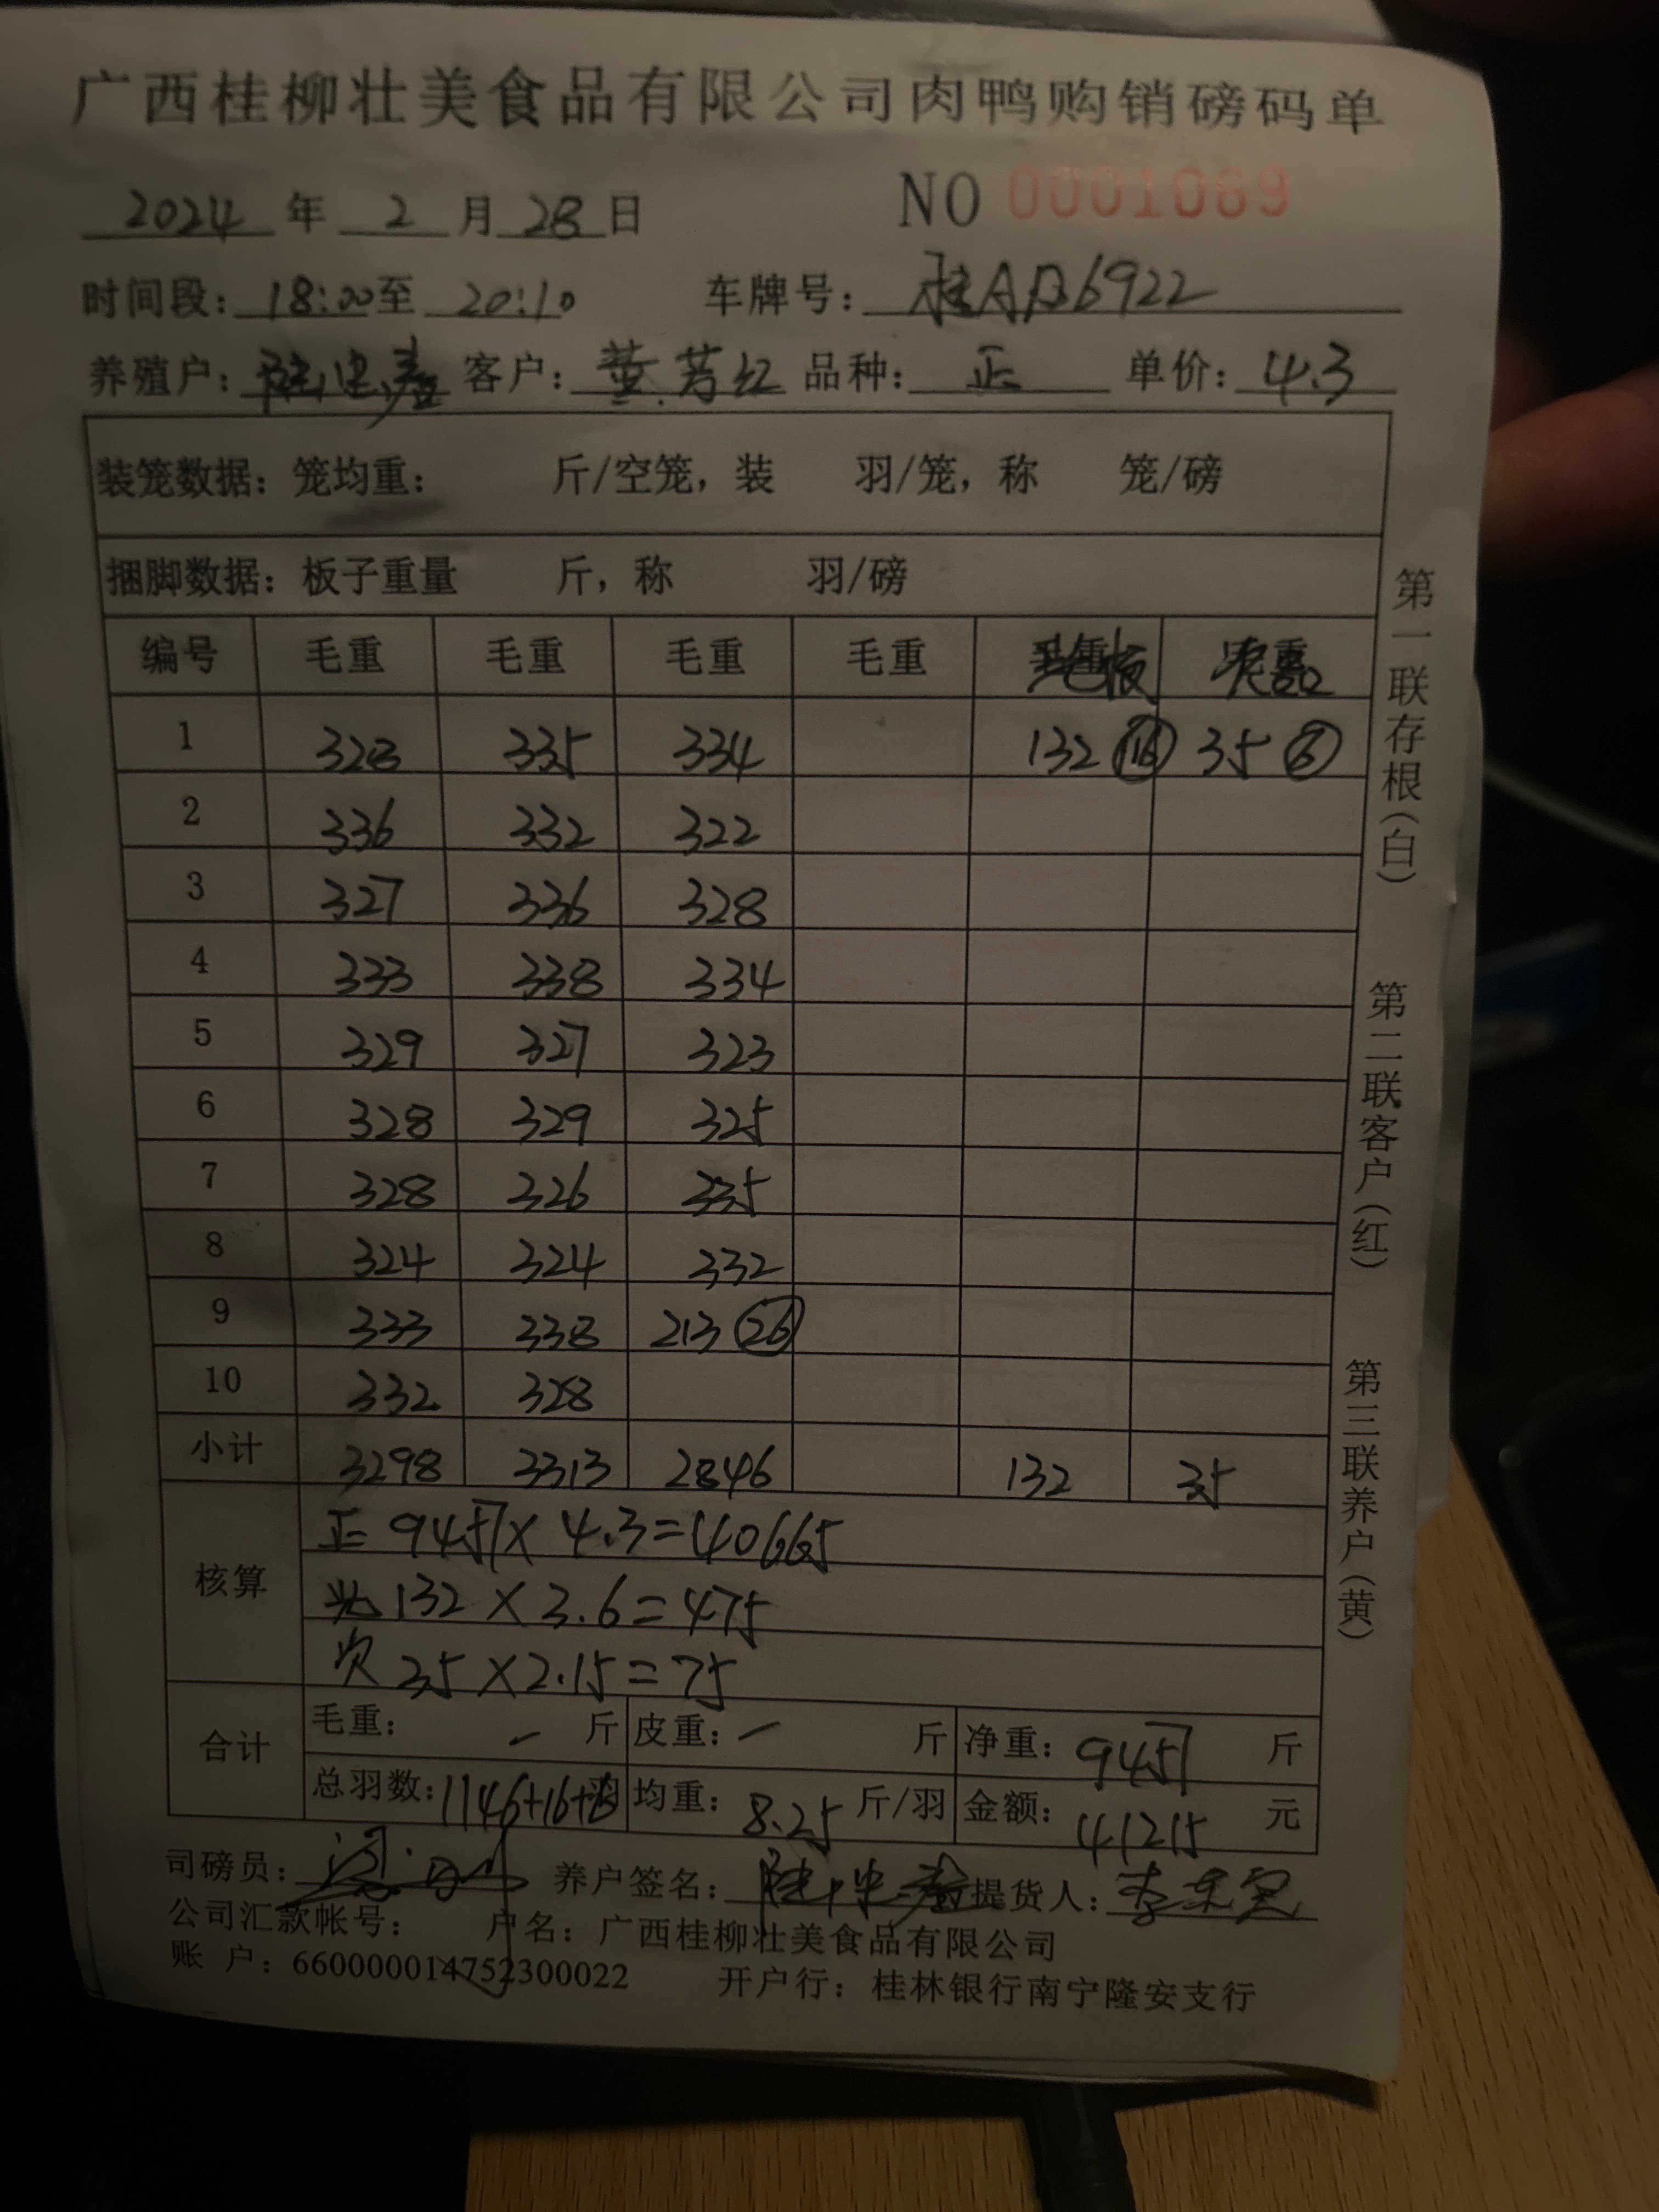 广西桂柳壮美食品有限公司肉鸭购销磅码单
2024 年 2 月 28 日 NO 0001069
时间段: 18:00至 20:10 车牌号: 桂AB6922
养殖户: 陆忠 客户: 黄芳红 品种: 正 单价: 4.3
装笼数据: 笼均重: 斤/空笼, 装 羽/笼, 称 笼/磅
捆脚数据: 板子重量 斤, 称 羽/磅
编号 毛重 毛重 毛重 毛重
1 328 335 334 132 16 35 6
2 336 332 322
3 327 336 328
4 333 338 334
5 329 327 323
6 328 329 325
7 328 326 335
8 324 324 332
9 333 338 213 26
10 332 328
小计 3298 3313 2846 132 35
核算 正 9457 × 4.3 = 40665
132 × 3.6 = 475
次 35 × 2.15 = 75
合计 毛重: — 斤 皮重: — 斤 净重: 9457 斤
总羽数: 1146+16+ 均重: 8.25 斤/羽 金额: 41215 元
司磅员: 养户签名: 陆忠 提货人: 李
公司汇款帐号: 户名: 广西桂柳壮美食品有限公司
账 户: 660000014752300022 开户行: 桂林银行南宁隆安支行
第一联存根(白)
第二联客户(红)
第三联养户(黄)